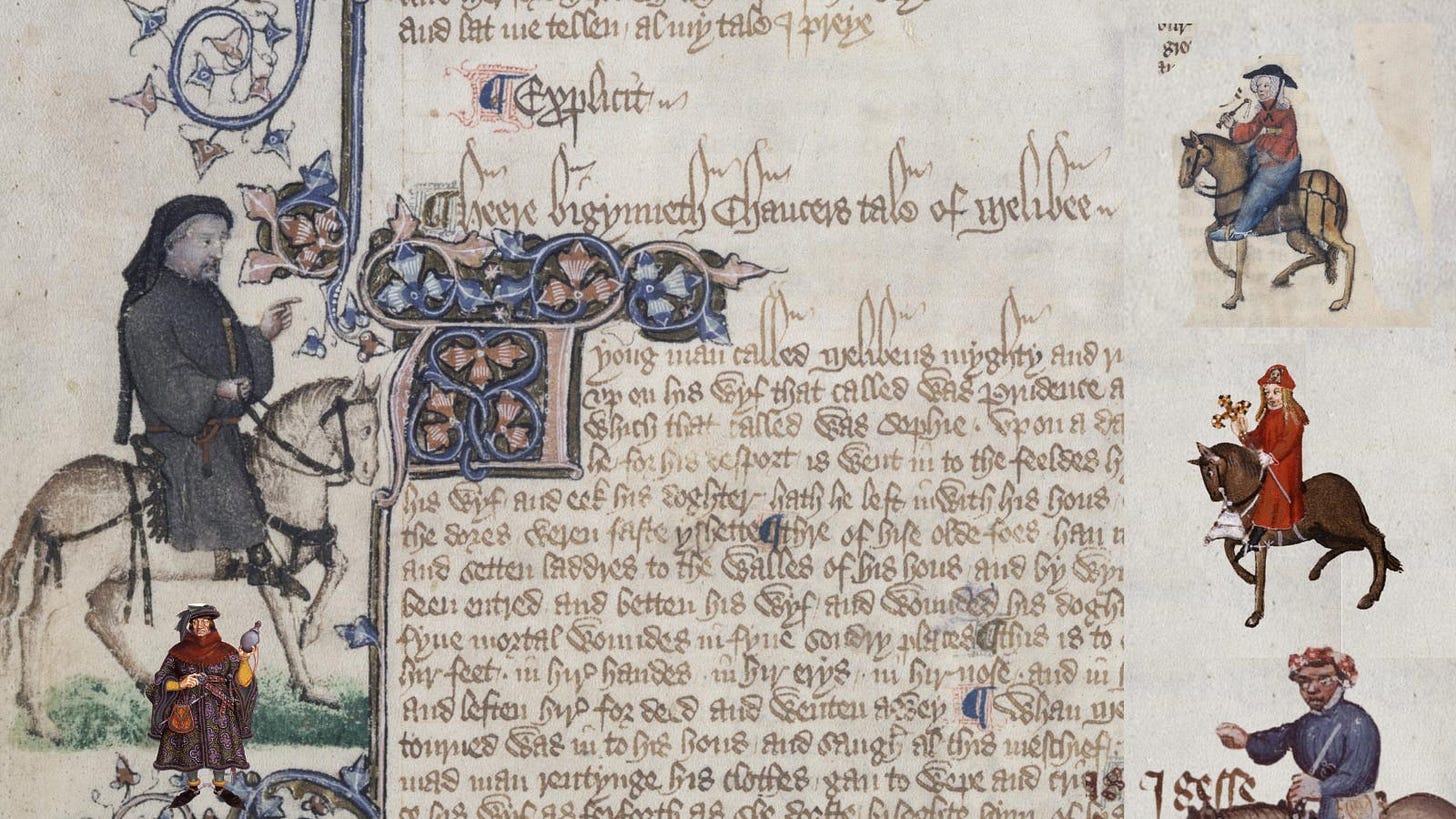 and lat me tellen al my tale I preye
Explicit
Heere bigynneth Chaucers tale of Melibee
yong man called Melibeus myghty and r
vp on his wyf that called was Prudence a
which that called was Sophie . Vpon a da
he for his desport is went in to the feeldes h
his wyf and eek his doghter hath he left in with his hous
the dores weren faste yshette ¶ thre of hise olde foes han
and setten laddres to the walles of his hous and by wyn
been entred and betten his wyf and wounded his dogh
fyue mortal woundes in fyue sondry places ¶ this is to
hir feet . in hir handes . in hir erys . in hir nose . and in
and leften hir for deed and wenten awey ¶ Whan Me
tourned was in to his hous and saugh al this meschief
mad man rentynge his clothes . gan to wepe and cri
I gesse